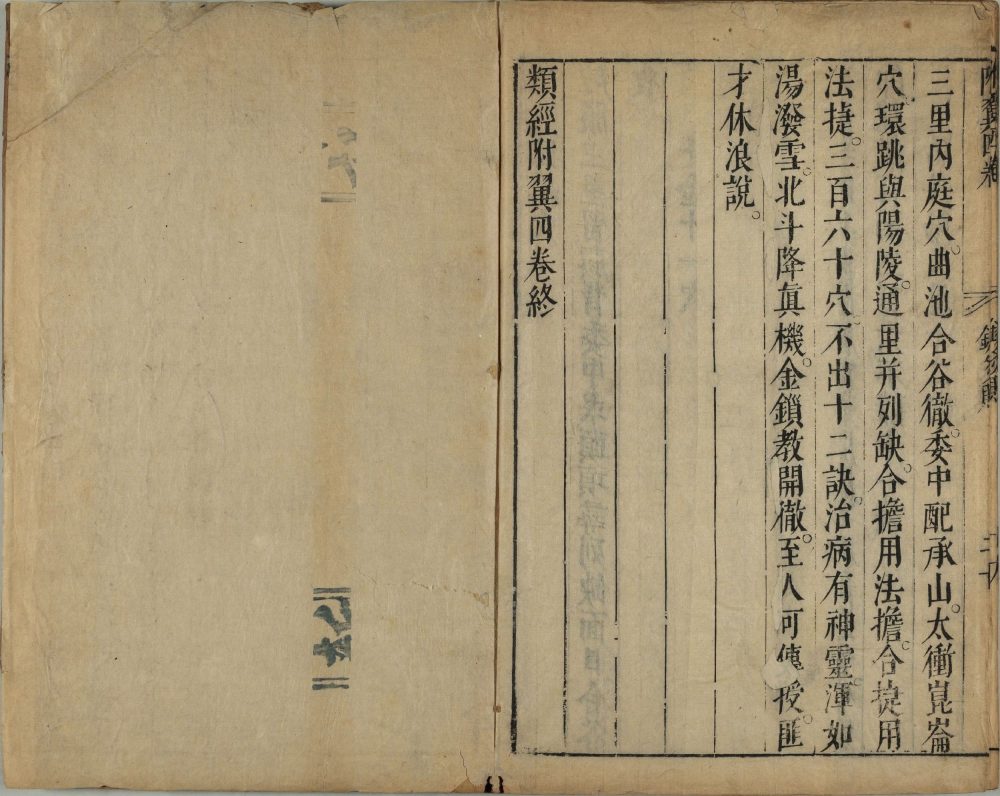 三里內庭穴。曲池合谷徹。委中配承山。太衝崑崙
穴。環跳與陽陵。通里并列缺。合擔用法擔。合㨗用
法㨗。三百六十穴。不出十二訣。治病有神靈。渾如
湯潑雪。北斗降眞機。金鎖教開徹。至人可傳授。匪
才休浪說。
類經附翼四卷終
附翼四卷